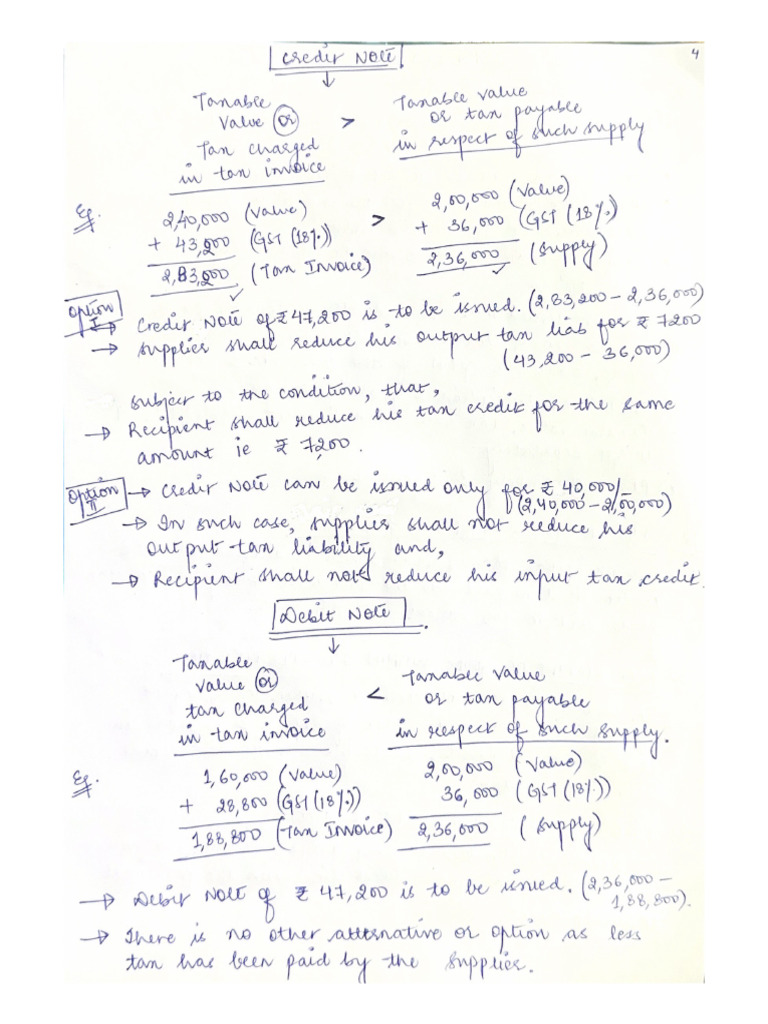 Credit Note
4
↓
Taxable Value (or) > Taxable value or tax payable
Tax charged in respect of such supply
in tax invoice
Eg. 2,40,000 (Value) > 2,00,000 (Value)
+ 43,200 (GST (18%)) + 36,000 (GST (18%)
2,83,200 (Tax Invoice) 2,36,000 (Supply)
Option I → Credit Note of ₹ 47,200 is to be issued. (2,83,200 – 2,36,000)
→ Supplier shall reduce his output tax liab for ₹ 7200
(43,200 – 36,000)
subject to the condition, that,
→ Recipient shall reduce his tax credit for the same
amount ie ₹ 7,200.
Option II → Credit Note can be issued only for ₹ 40,000/-
(2,40,000 – 2,00,000)
→ In such case, supplier shall not reduce his
output tax liability and,
→ Recipient shall not reduce his input tax credit.
Debit Note
↓
Taxable Value (or) < Taxable Value
tax charged or tax payable
in tax invoice in respect of such supply.
Eg. 1,60,000 (Value) 2,00,000 (Value)
+ 28,800 (GST (18%)) 36,000 (GST (18%))
1,88,800 (Tax Invoice) 2,36,000 (Supply)
→ Debit Note of ₹ 47,200 is to be issued. (2,36,000 –
1,88,800).
→ There is no other alternative or option as less
tax has been paid by the supplier.